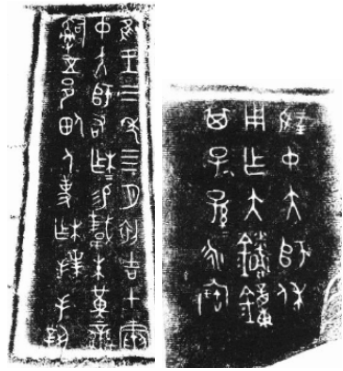 隹王三年四月初吉甲寅
中大師右柞易載朱黃䜌
𤔲五邑甸人事柞拜手對
揚中大師休
用乍大鐘
其子孫永寶